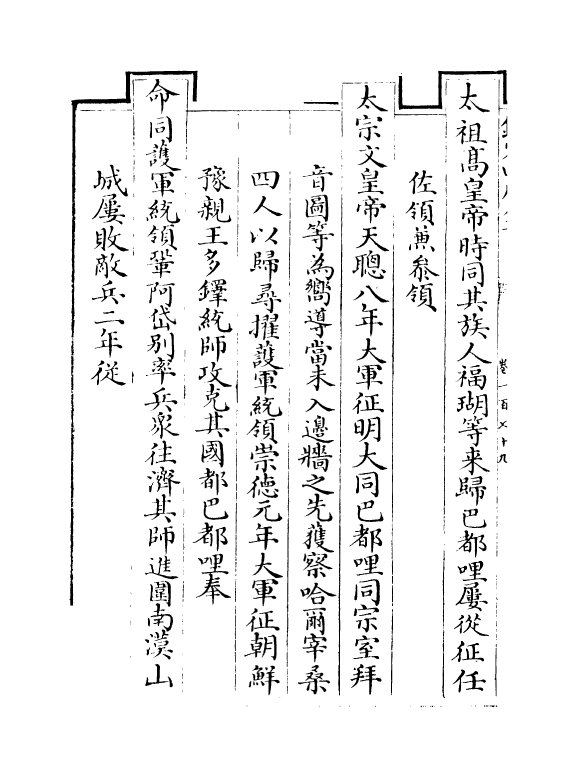 太祖髙皇帝時同其族人福瑚等来歸巴都哩屢從征任
佐領兼叅領
太宗文皇帝天聰八年大軍征明大同巴都哩同宗室拜
音圖等為嚮導當未入邊牆之先獲察哈爾宰桑
四人以歸尋擢護軍統領崇德元年大軍征朝鮮
豫親王多鐸統師攻克其國都巴都哩奉
命同護軍統領鞏阿岱别率兵衆往濟其師進圍南漢山
城屢敗敵兵二年從
卷一百七十九